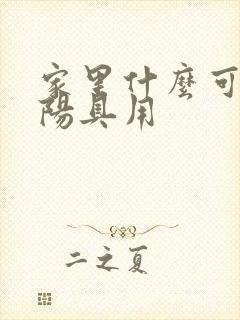 家里什麼可
陽具用
二之夏